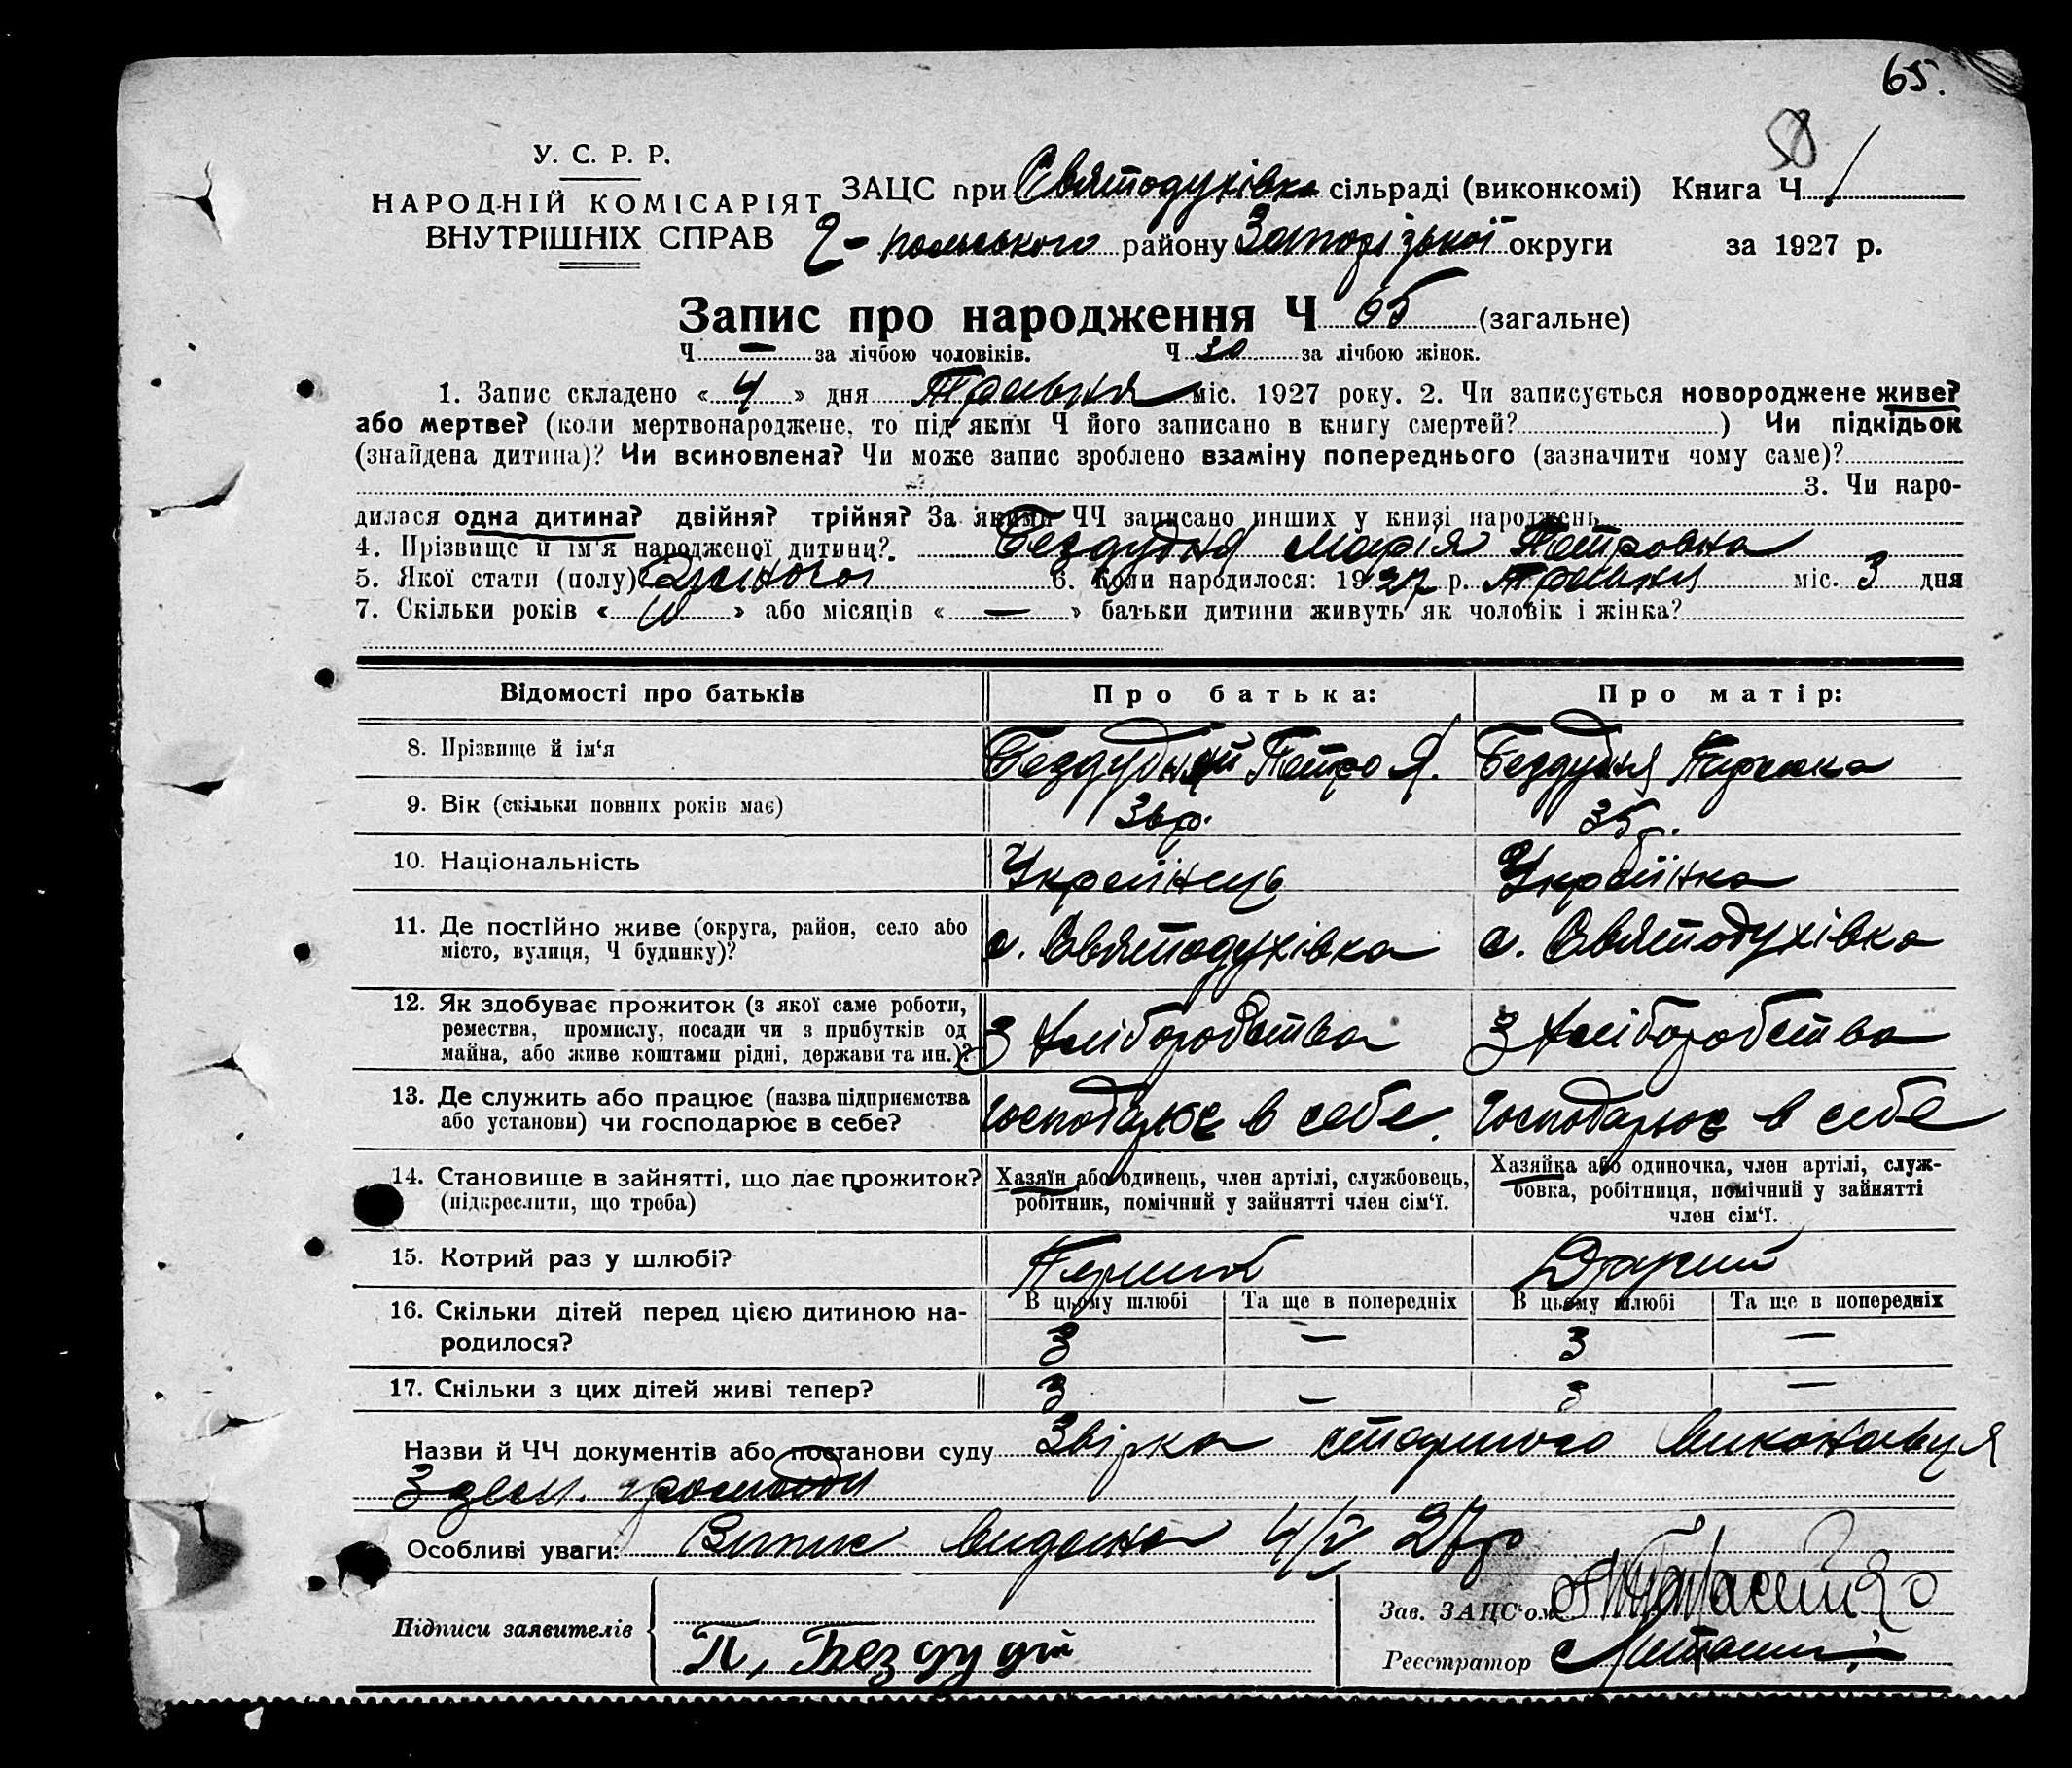 65.
58
У. С. Р. Р.
НАРОДНІЙ КОМІСАРІЯТ
ВНУТРІШНІХ СПРАВ
ЗАЦС при Святодухівка сільраді (виконкомі) Книга Ч 1
польського району Запорізької округи за 1927 р.
Запис про народження Ч 65 (загальне)
Ч — за лічбою чоловіків. Ч 30 за лічбою жінок.
1. Запис складено « 4 » дня Травня міс. 1927 року. 2. Чи записується новороджене живе?
або мертве? (коли мертвонароджене, то під яким Ч його записано в книгу смертей? ) Чи підкідьок
(знайдена дитина)? Чи всиновлена? Чи може запис зроблено взаміну попереднього (зазначити чому саме)?
3. Чи наро-
дилася одна дитина? двійня? трійня? За якими ЧЧ записано инших у книзі народжень
4. Прізвище й ім'я народженої дитини? Бездудня Марія Петровна
5. Якої стати (полу)? жіночого 6. Коли народилося: 1927 р. Травня міс. 3 дня
7. Скільки років « 10 » або місяців « — » батьки дитини живуть як чоловік і жінка?
Відомості про батьків Про батька: Про матір:
8. Прізвище й ім'я Бездудний Петро Я. Бездудня
9. Вік (скільки повних років має) 36 р. 35 р.
10. Національність Українець Українка
11. Де постійно живе (округа, район, село або
місто, вулиця, Ч будинку)? с. Святодухівка с. Святодухівка
12. Як здобуває прожиток (з якої саме роботи,
ремества, промислу, посади чи з прибутків од
майна, або живе коштами рідні, держави та ин.)? З хліборобства З хліборобства
13. Де служить або працює (назва підприємства
або установи) чи господарює в себе? Господарює в себе. Господарює в себе
14. Становище в зайнятті, що дає прожиток?
(підкреслити, що треба)
Хазяїн або одинець, член артілі, службовець,
робітник, помічний у зайнятті член сім'ї.
Хазяйка або одиночка, член артілі, служ-
бовка, робітниця, помічний у зайнятті
член сім'ї.
15. Котрий раз у шлюбі? Перший Другий
16. Скільки дітей перед цією дитиною на-
родилося?
В цьому шлюбі Та ще в попередніх В цьому шлюбі Та ще в попередніх
3 — 3 —
17. Скільки з цих дітей живі тепер? 3 — 3 —
Назви й ЧЧ документів або постанови суду Звірка старшого виконавця
З зем. громади
Особливі уваги: Випис видана 4/V 27 р
Підписи заявителів
П. Бездудн
Зав. ЗАЦС'ом
Реєстратор